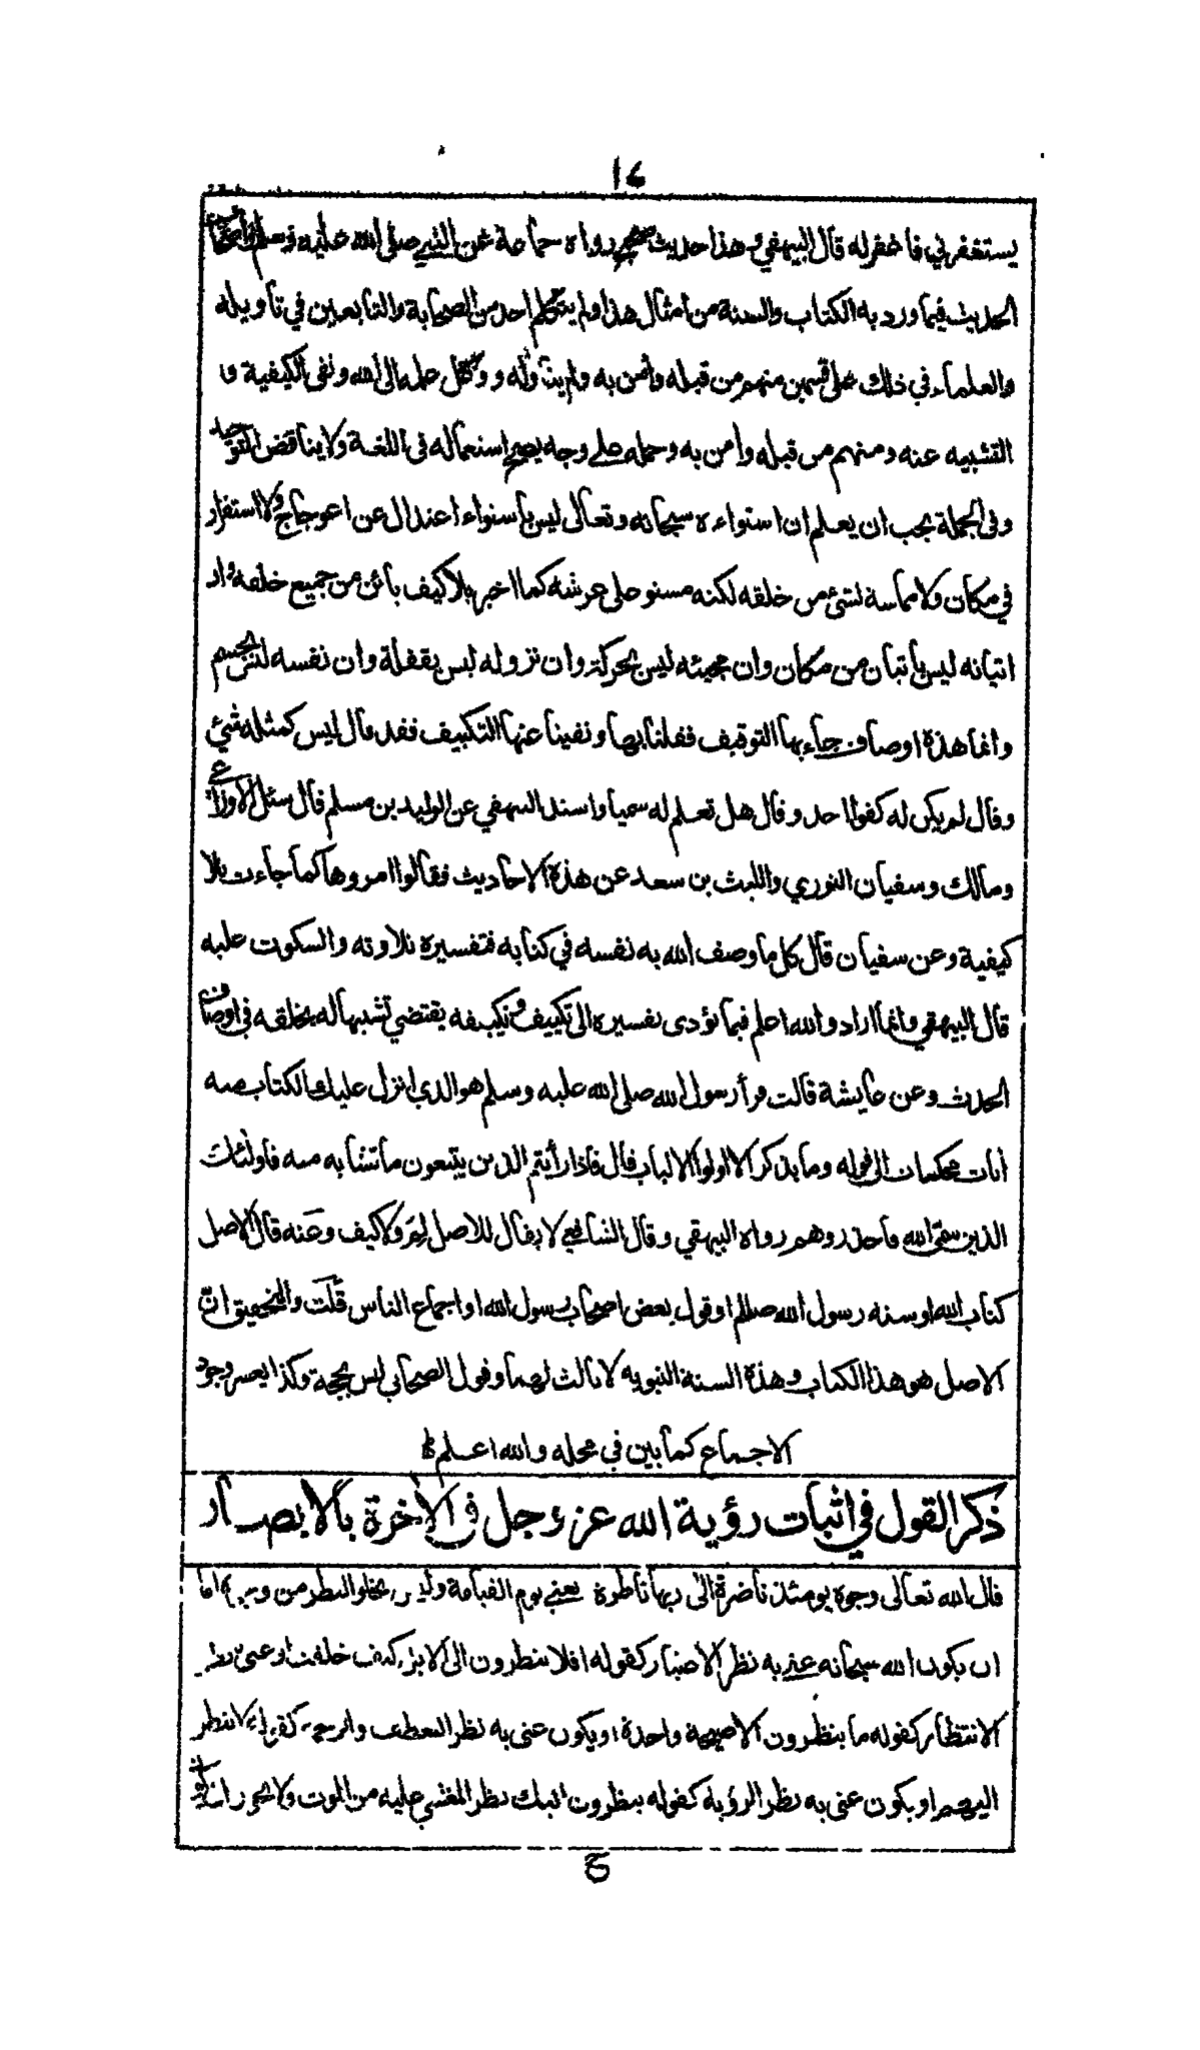 ١٤
يستغفرني فاغفر له قال البيهقي وهذا حديث صحيح رواه جماعة عن النبي صلى الله عليه وسلم
الحديث فيما ورد به الكتاب والسنة من امثال هذا ولم يتكلم احد من الصحابة والتابعين في تاويله
والعلماء في ذلك على قسمين منهم من قبله وأمن به ولم يتأوله ووكل علمه الى الله ونفى الكيفية و
التشبيه عنه ومنهم من قبله وامن به وحمله على وجه يصح استعماله في اللغة ولا يناقض التوحيد
وفي الجملة يجب ان يعلم ان استواءه سبحانه وتعالى ليس باستواء اعتدال عن اعوجاج ولا استقرار
في مكان ولا مماسة لشئ من خلقه لكنه مستو على عرشه كما اخبر بلا كيف بائن من جميع خلقه وان
اتيانه ليس باتيان من مكان وان مجيئه ليس بحركة وان نزوله ليس بنقلة وان نفسه ليس بجسم
وانما هذه اوصاف جاء بها التوقيف فقلنا بها ونفينا عنها التكييف فقد قال ليس كمثله شئ
وقال لم يكن له كفوا احد وقال هل تعلم له سميا واسند البيهقي عن الوليد بن مسلم قال سئل الاوزاعي
ومالك وسفيان الثوري والليث بن سعد عن هذه الاحاديث فقالوا امروها كما جاءت بلا
كيفية وعن سفيان قال كل ما وصف الله به نفسه في كتابه فتفسيره تلاوته والسكوت عليه
قال البيهقي وانما اراد والله اعلم فيما يؤدى تفسيره الى تكييف وتكييفه يقتضي تشبيها له بخلقه في اوصاف
الحدث وعن عايشة قالت قرأ رسول الله صلى الله عليه وسلم هو الذي انزل عليك الكتاب منه
ايات محكمات الى قوله وما يذكر الا اولوا الالباب قال فاذا رأيتم الذين يتبعون ما تشابه منه فاولئك
الذين سمى الله فاحذروهم رواه البيهقي وقال الشافعي لا يقال للاصل لِمَ ولا كيف وعنه قال الاصل
كتاب الله او سنه رسول الله صللم او قول بعض اصحاب رسول الله او اجماع الناس قلت والتحقيق انّ
الاصل هو هذا الكتاب وهذه السنة النبويه لا ثالث لهما وقول الصحابي ليس بحجة وكذا يعسر وجود
الاجماع كما بين في محله والله اعلم
ذكر القول في اثبات رؤية الله عز وجل في الأخرة بالابصار
قال الله تعالى وجوه يومئذ ناضرة الى ربها ناظرة يعني يوم القيامة وليس يخلو النظر من وجوه اما
ان يكون الله سبحانه عنى به نظر الاعتبار كقوله افلا ينظرون الى الابل كيف خلقت او عنى به نظر
الانتظار كقوله ما ينظرون الا صيحة واحدة او يكون عنى به نظر التعطف والرحمة كقوله لا ينظر
اليهم او يكون عنى به نظر الرؤية كقوله ينظرون اليك نظر المغشي عليه من الموت ولا يجوز
ج